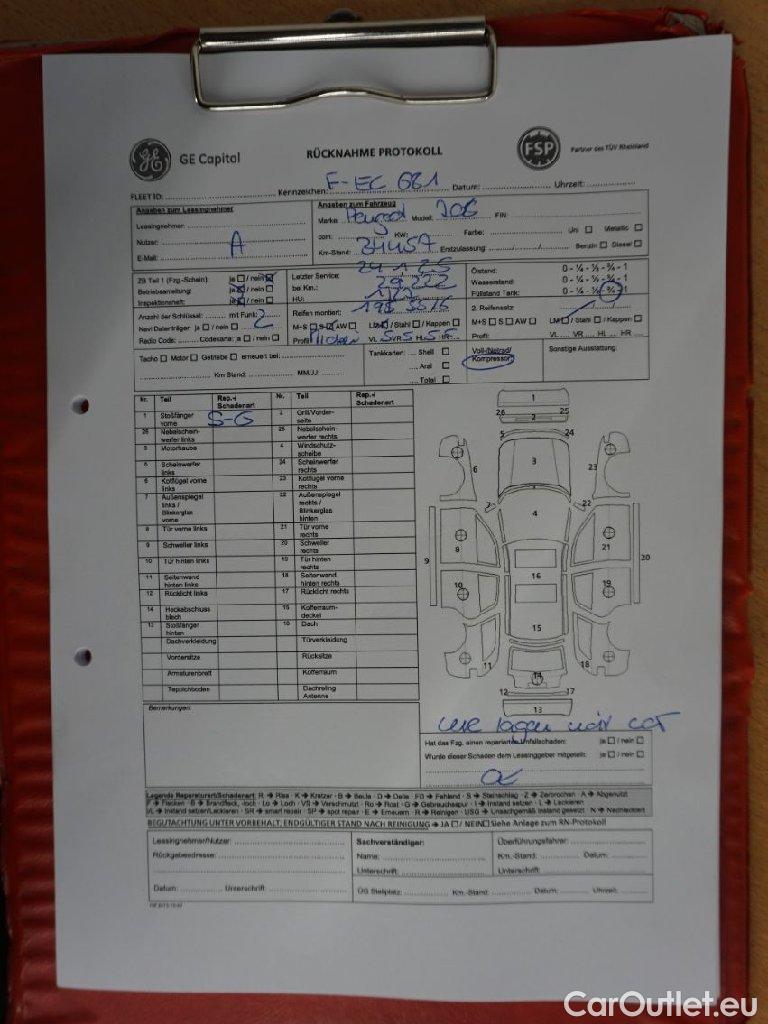 GE Capital
RÜCKNAHME PROTOKOLL
FSP
Partner des TÜV Rheinland
FLEET ID: Kennzeichen: F-EC 681 Datum: Uhrzeit:
Angaben zum Leasingnehmer
Leasingnehmer:
Nutzer: A
E-Mail:
Angaben zum Fahrzeug
Marke Peugeot Model: 208 FIN:
KW: Farbe: Uni Metallic
Km-Stand: 34457 Erstzulassung: Benzin Diesel
ZB Teil 1 (Fzg-Schein): ja / nein
Betriebsanleitung: ja / nein
Inspektionsheft: ja / nein
Anzahl der Schlüssel: mt Funk: 2
Navi Datenträger ja / nein
Radio Code: Codecard: ja / nein
Letzter Service:
bei Km.: 29222
HU:
Reifen montiert: 195 55 16
M+S S AW LM / Stahl / Kappen
Profil VL 5 VR 5 HL 5 HR 5
Ölstand: 0 - ¼ - ½ - ¾ - 1
Wasserstand: 0 - ¼ - ½ - ¾ - 1
Füllstand Tank: 0 - ¼ - ½ - ¾ - 1
2. Reifensatz
M+S S AW LM / Stahl / Kappen
Profil: VL VR HL HR
Tacho Motor Getriebe erneuert bei:
Km-Stand: MM.JJ
Tankkarten: Shell
Aral
Total
Voll-/Notrad/
Kompressor
Sonstige Ausstattung:
Nr. Teil Rep.-/ Schadenart Nr. Teil Rep.-/ Schadenart
1 Stoßfänger vorne S-G 2 Grill/Vorderseite
26 Nebelscheinwerfer links 25 Nebelscheinwerfer rechts
3 Motorhaube 4 Windschutzscheibe
5 Scheinwerfer links 24 Scheinwerfer rechts
6 Kotflügel vorne links 23 Kotflügel vorne rechts
7 Außenspiegel links / Blinkerglas vorne 22 Außenspiegel rechts / Blinkerglas hinten
8 Tür vorne links 21 Tür vorne rechts
9 Schweller links 20 Schweller rechts
10 Tür hinten links 19 Tür hinten rechts
11 Seitenwand hinten links 18 Seitenwand hinten rechts
12 Rücklicht links 17 Rücklicht rechts
14 Heckabschluss blech 15 Kofferraumdeckel
13 Stoßfänger hinten 16 Dach
Dachverkleidung Türverkleidung
Vordersitze Rücksitze
Armaturenbrett Kofferraum
Teppichboden Dachreling Antenne
1
26 25
2
5 24
6 3 23
7 22
4
9 8 21 20
10 16 19
15
11 14 18
12 17
13
Bemerkungen:
Hat das Fzg. einen reparierten Unfallschaden: ja / nein
Wurde dieser Schaden dem Leasinggeber mitgeteilt: ja / nein
Legende Reparaturart/Schadenart: R → Riss · K → Kratzer · B → Beule · D → Delle · FO → Fehlend · S → Steinschlag · Z → Zerbrochen · A → Abgenutzt
BEGUTACHTUNG UNTER VORBEHALT; ENDGÜLTIGER STAND NACH REINIGUNG → JA / NEIN Siehe Anlage zum RN-Protokoll
Leasingnehmer/Nutzer:
Rückgabeadresse:
Datum: Unterschrift:
Sachverständiger:
Name:
Unterschrift:
Überführungsfahrer:
Km.-Stand: Datum:
Unterschrift:
ÜG Stellplatz: Km.-Stand: Datum: Uhrzeit:
CarOutlet.eu